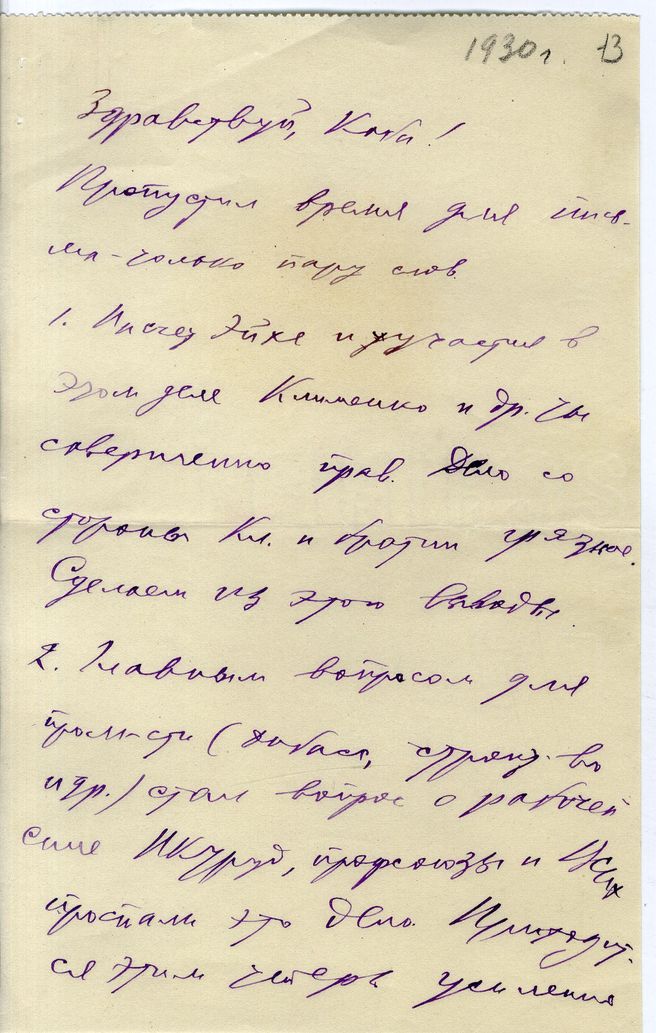 1930 г. 13
Здравствуй, Коба!
Пропустил время для пись-
ма – только пару слов.
1. Насчет Эйхе и участия в
этом деле Клименко и др. ты
совершенно прав. Дело со
стороны Кл. и братии грязное.
Сделаем из этого выводы.
2. Главным вопросом для
пром-сти (Донбасс, строит-во
и др.) стал вопрос о рабочей
силе. НКТруд, профсоюзы и
проспали это дело. Приходит-
ся этим теперь усиленно